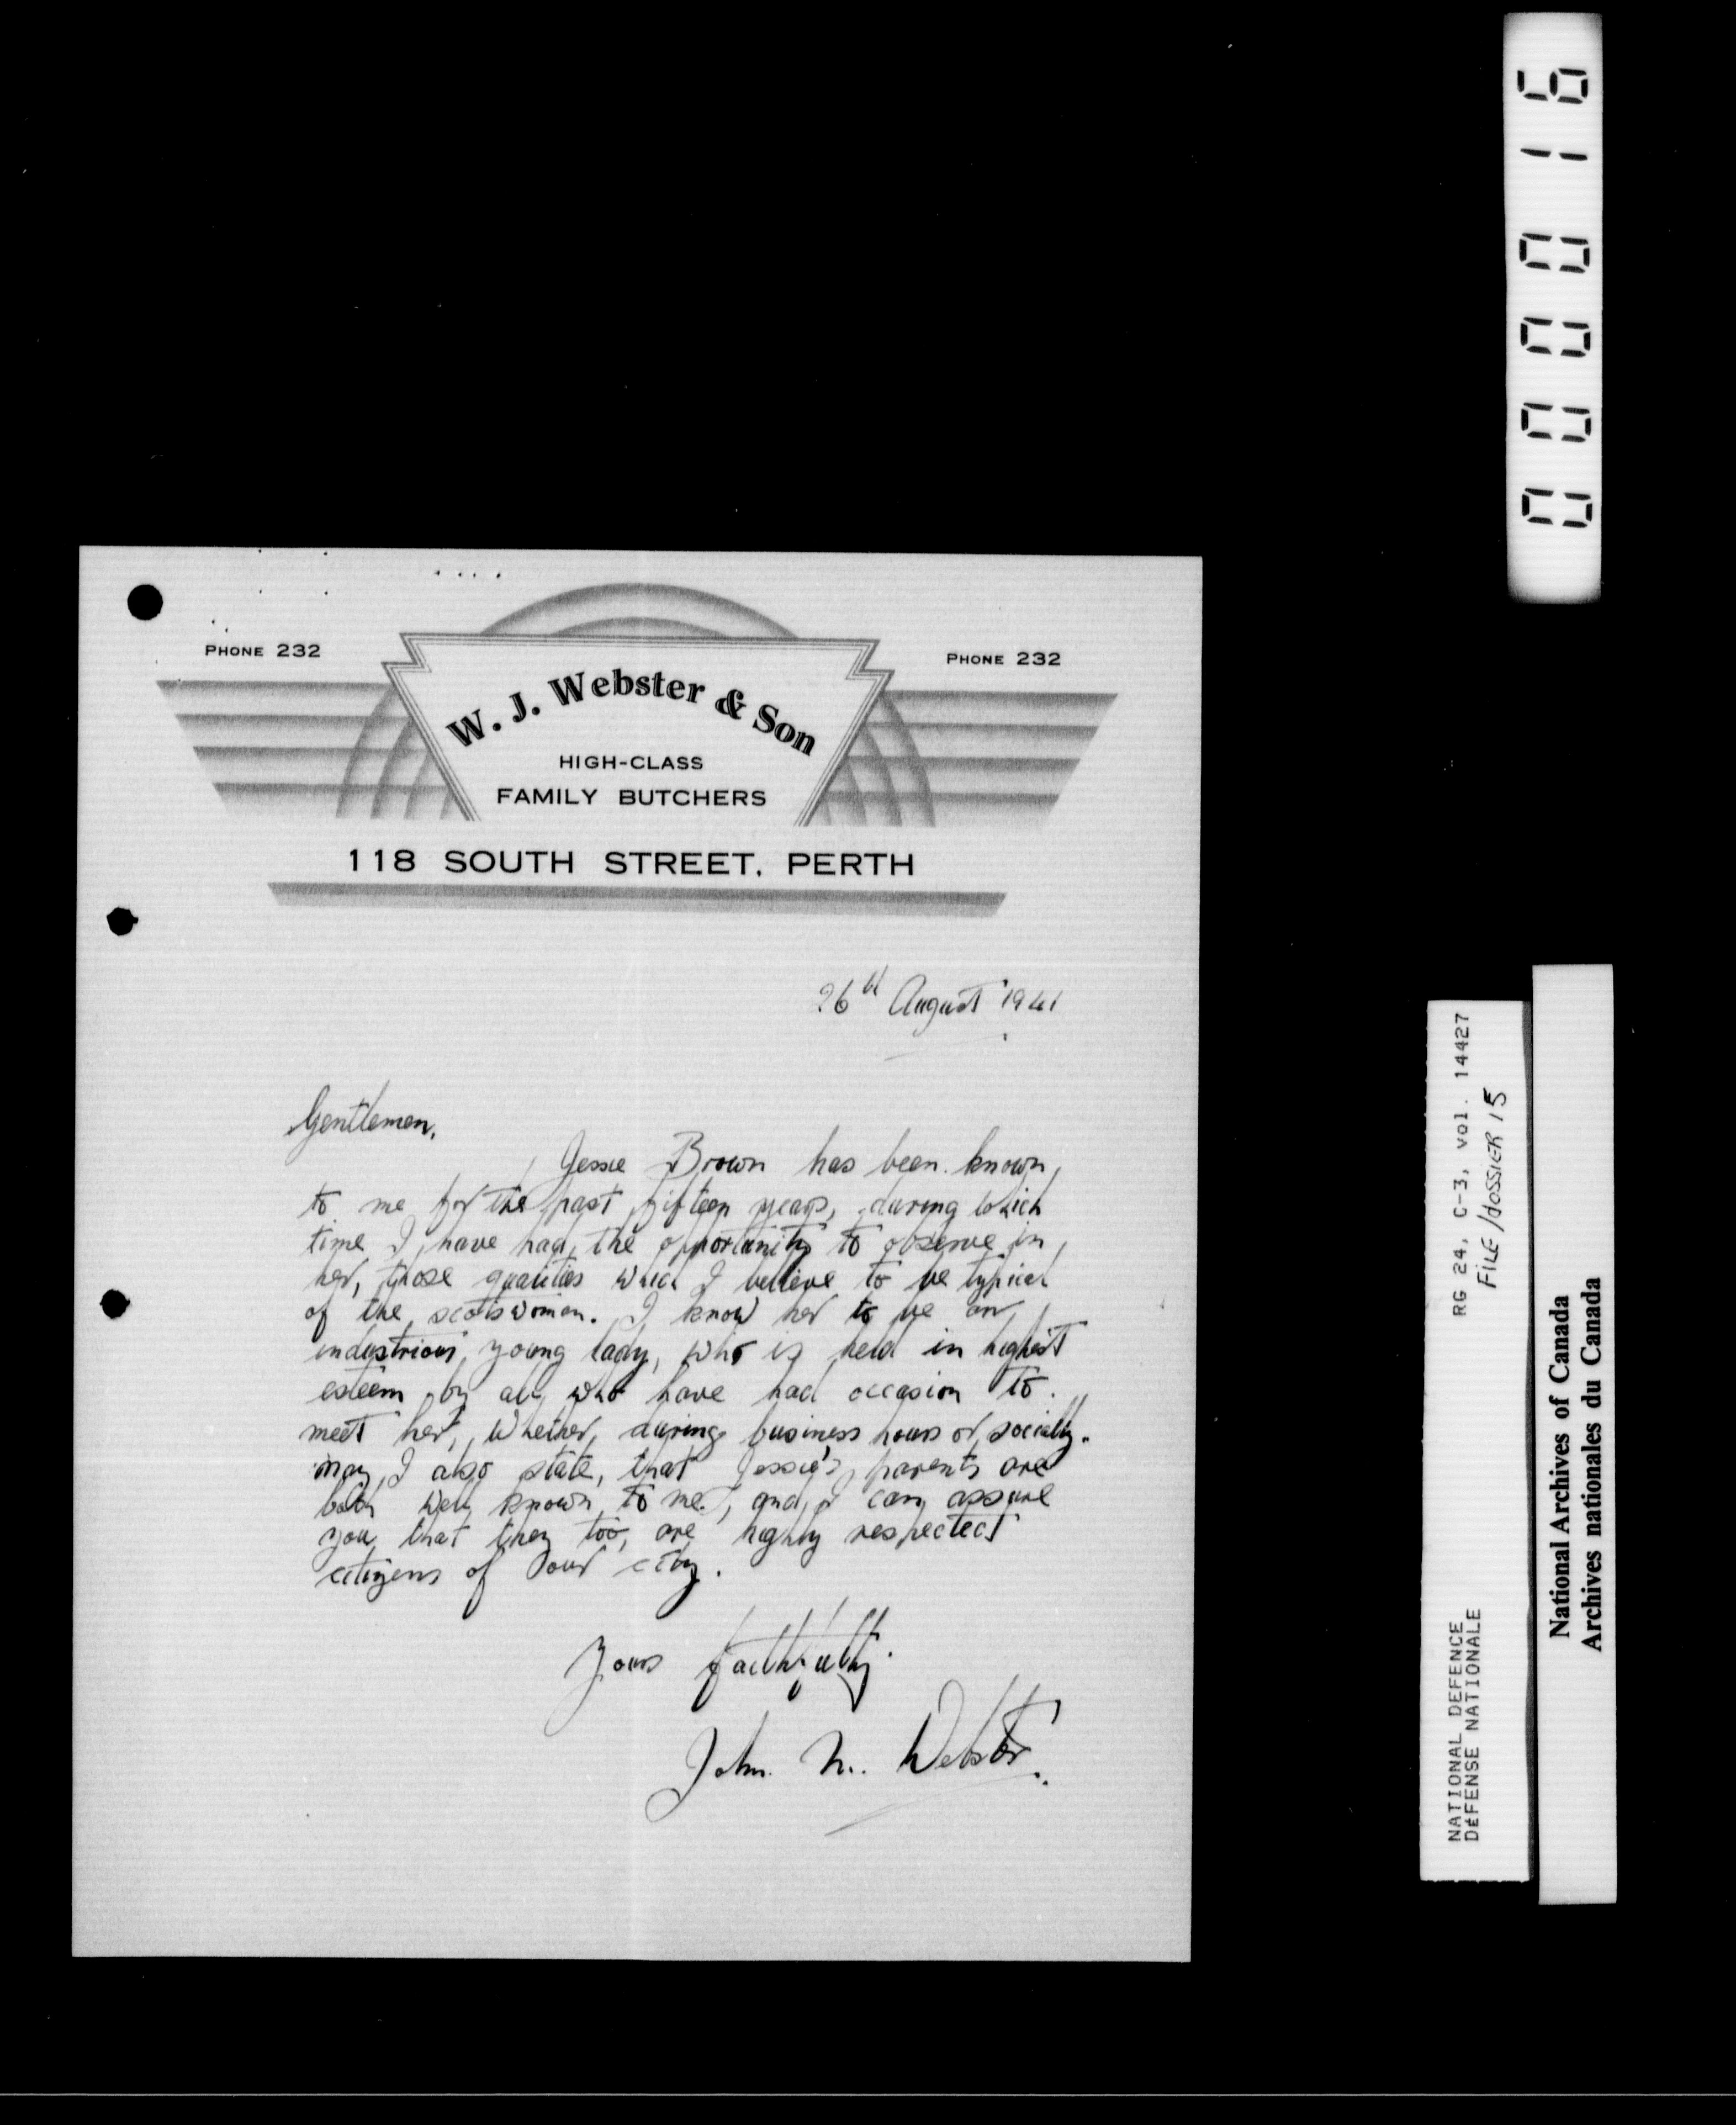 PHONE 232
PHONE 232
W. J. Webster & Son
HIGH-CLASS
FAMILY BUTCHERS
118 SOUTH STREET, PERTH
26th August 1941
Gentlemen,
Jessie Brown has been known,
to me for the past fifteen years, during which
time I have had, the opportunity to observe in
her, those qualities which I believe to be typical
of the scotswoman. I know her to be an
industrious, young lady, who is held in highest
esteem by all who have had occasion to
meet her, whether, during business hours or, socially.
may I also state, that Jessie's parents are
both well known to me, and, I can assure
you that they too, are highly respected
citizens of our city.
Yours faithfully.
John M. Webster.
000016
RG 24, C-3, vol. 14427
FILE/dOSSIER 15
NATIONAL DEFENCE
DéFENSE NATIONALE
National Archives of Canada
Archives nationales du Canada